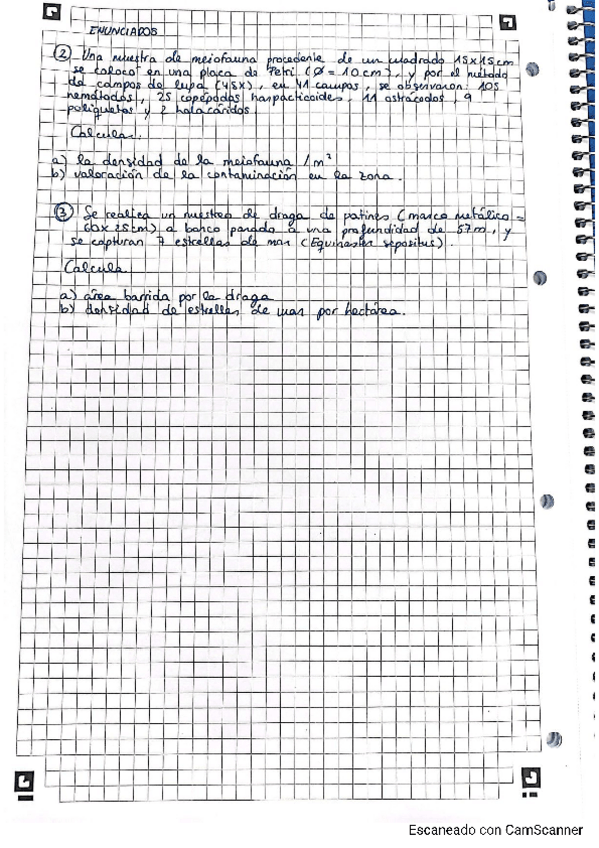 ENUNCIADOS
② Una muestra de meiofauna procedente de un cuadrado 15x15cm
se coloco en una placa de Petri (Ø = 10 cm), y por el método
de campos de lupa (45X), en 41 campos, se observaron: 105
nemátodos, 25 copépodos harpacticoides, 11 ostrácodos, 9
poliquetos y 2 halacáridos.
Calcula:
a) la densidad de la meiofauna /m²
b) valoración de la contaminación en la zona.
③ Se realiza un muestreo de draga de patines (marco metálico =
60x25cm) a barco parado a una profundidad de 57m, y
se capturan 7 estrellas de mar (Equinaster sepositus).
Calcula
a) área barrida por la draga
b) densidad de estrellas de mar por hectárea.
Escaneado con CamScanner